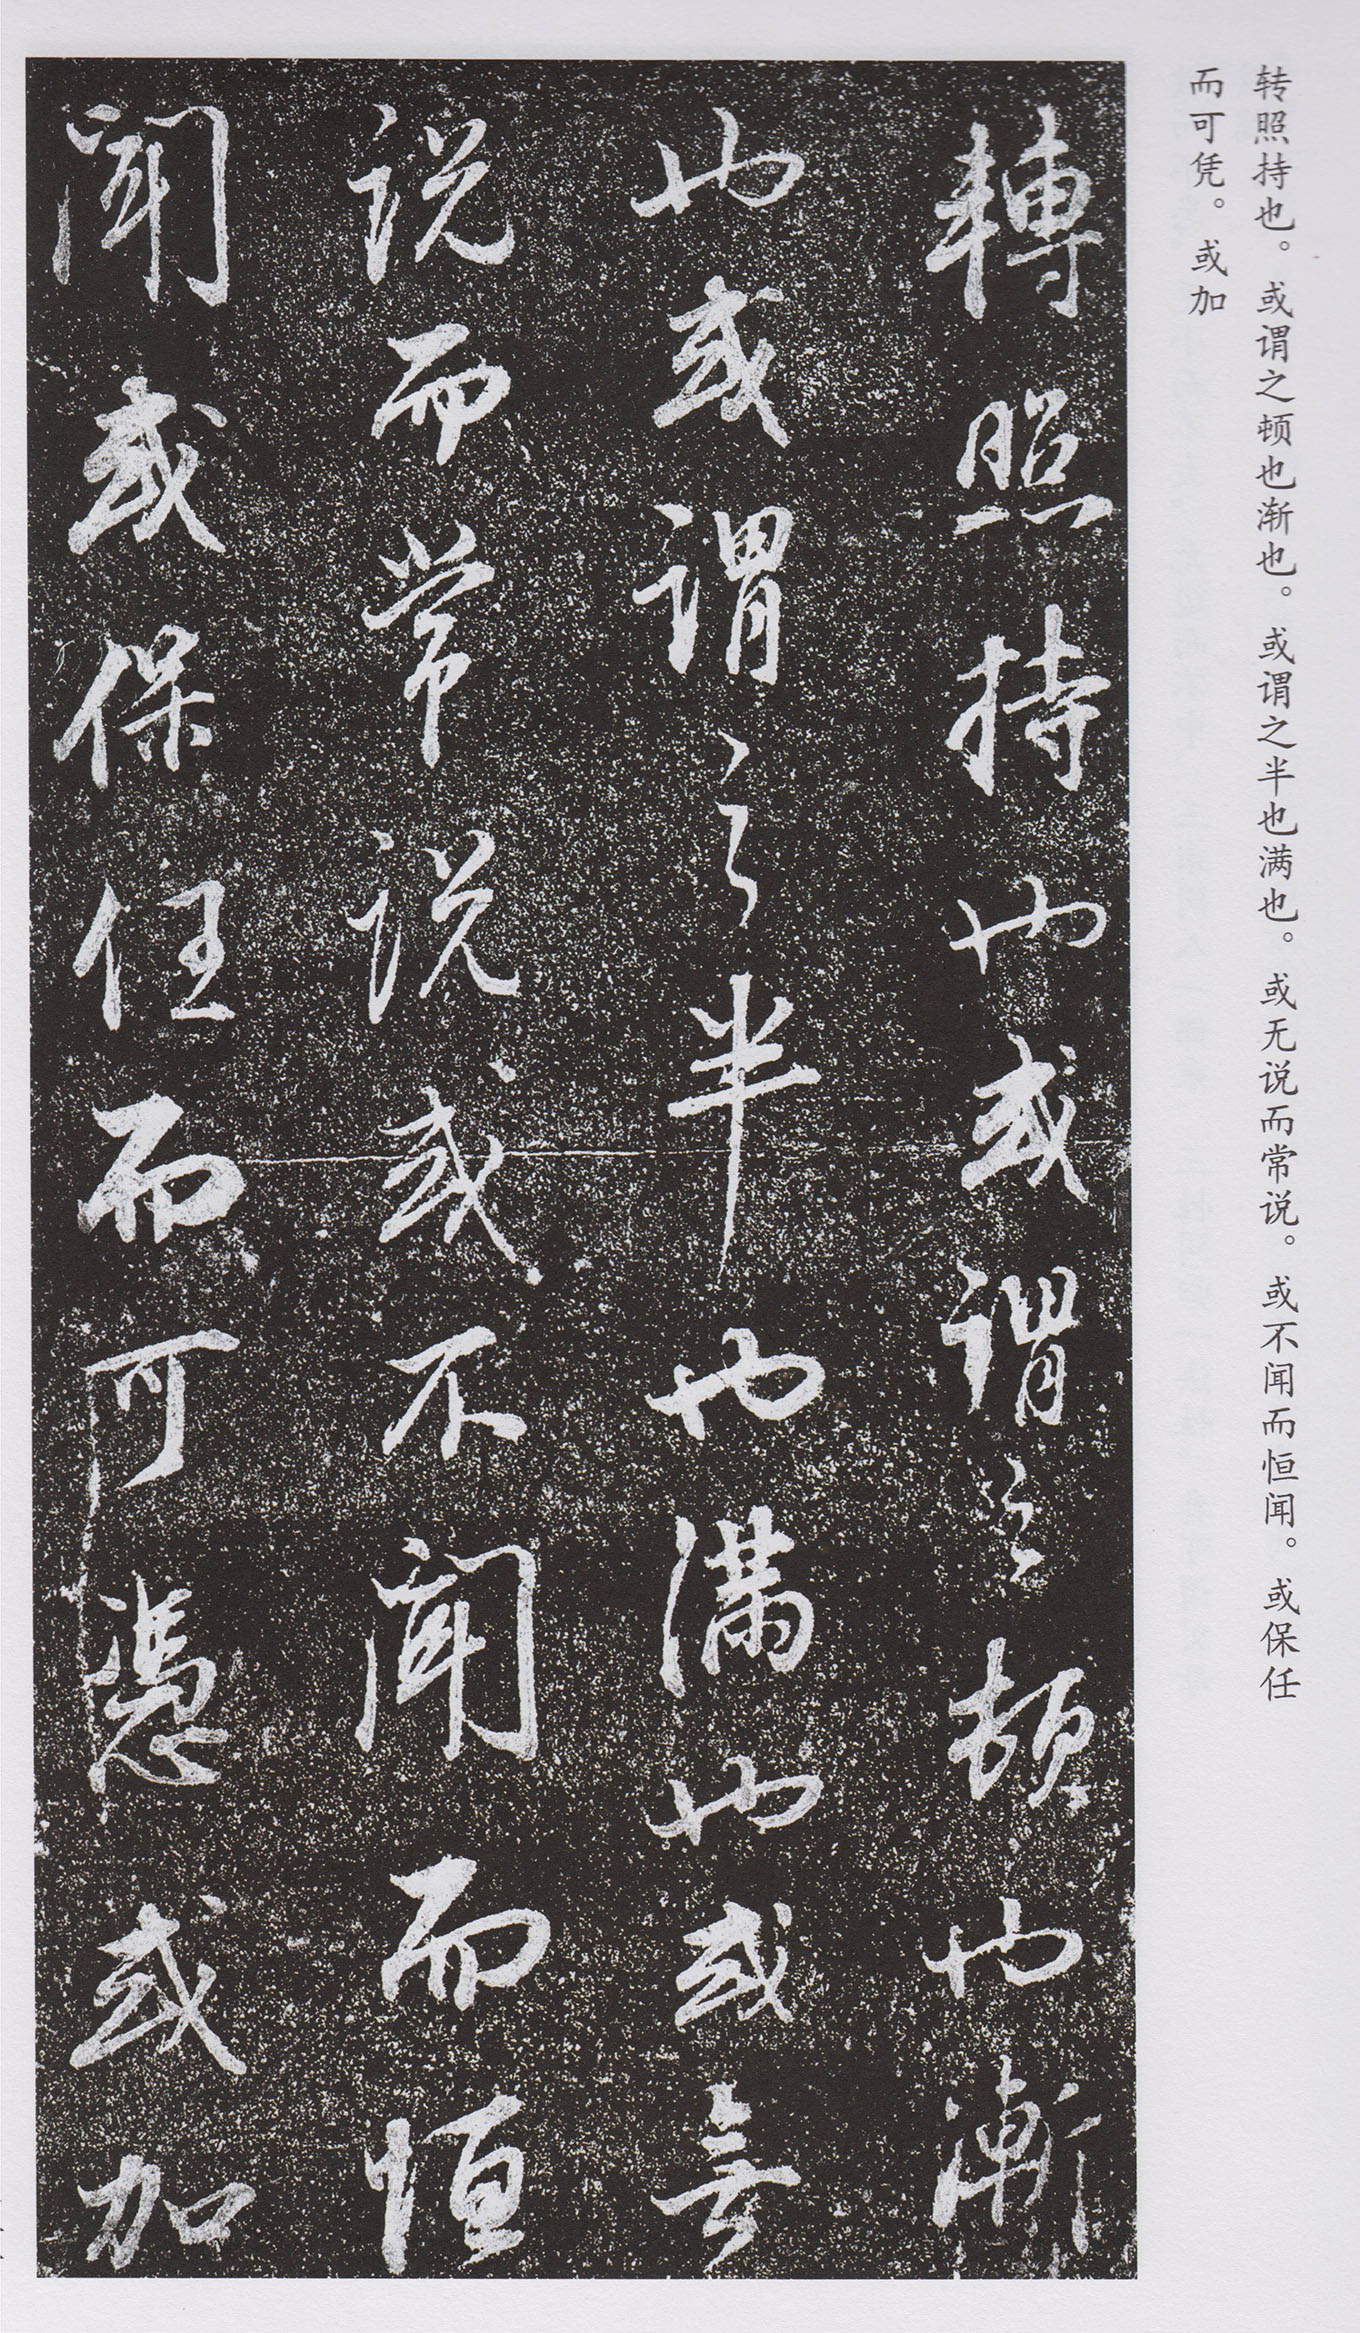 转照持也。或谓之顿也渐也。或谓之半也满也。或无说而常说。或不闻而恒闻。或保任
而可凭。或加
轉照持也或謂之頓也漸
也或謂之半也滿也或無
説而常説或不聞而恒
聞或保任而可憑或加